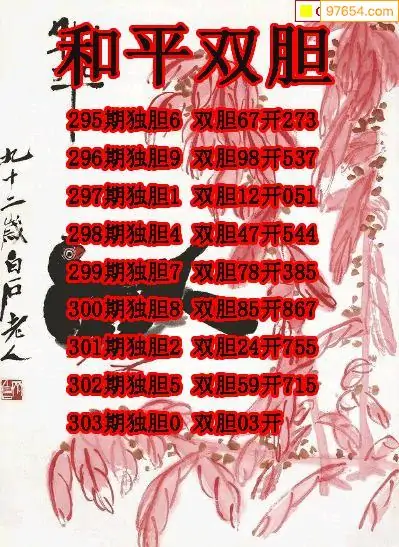 97654.com
和平双胆
295期独胆6 双胆67开273
296期独胆9 双胆98开537
297期独胆1 双胆12开051
298期独胆4 双胆47开544
299期独胆7 双胆78开385
300期独胆8 双胆85开867
301期独胆2 双胆24开755
302期独胆5 双胆59开715
303期独胆0 双胆03开
九十二岁白石老人